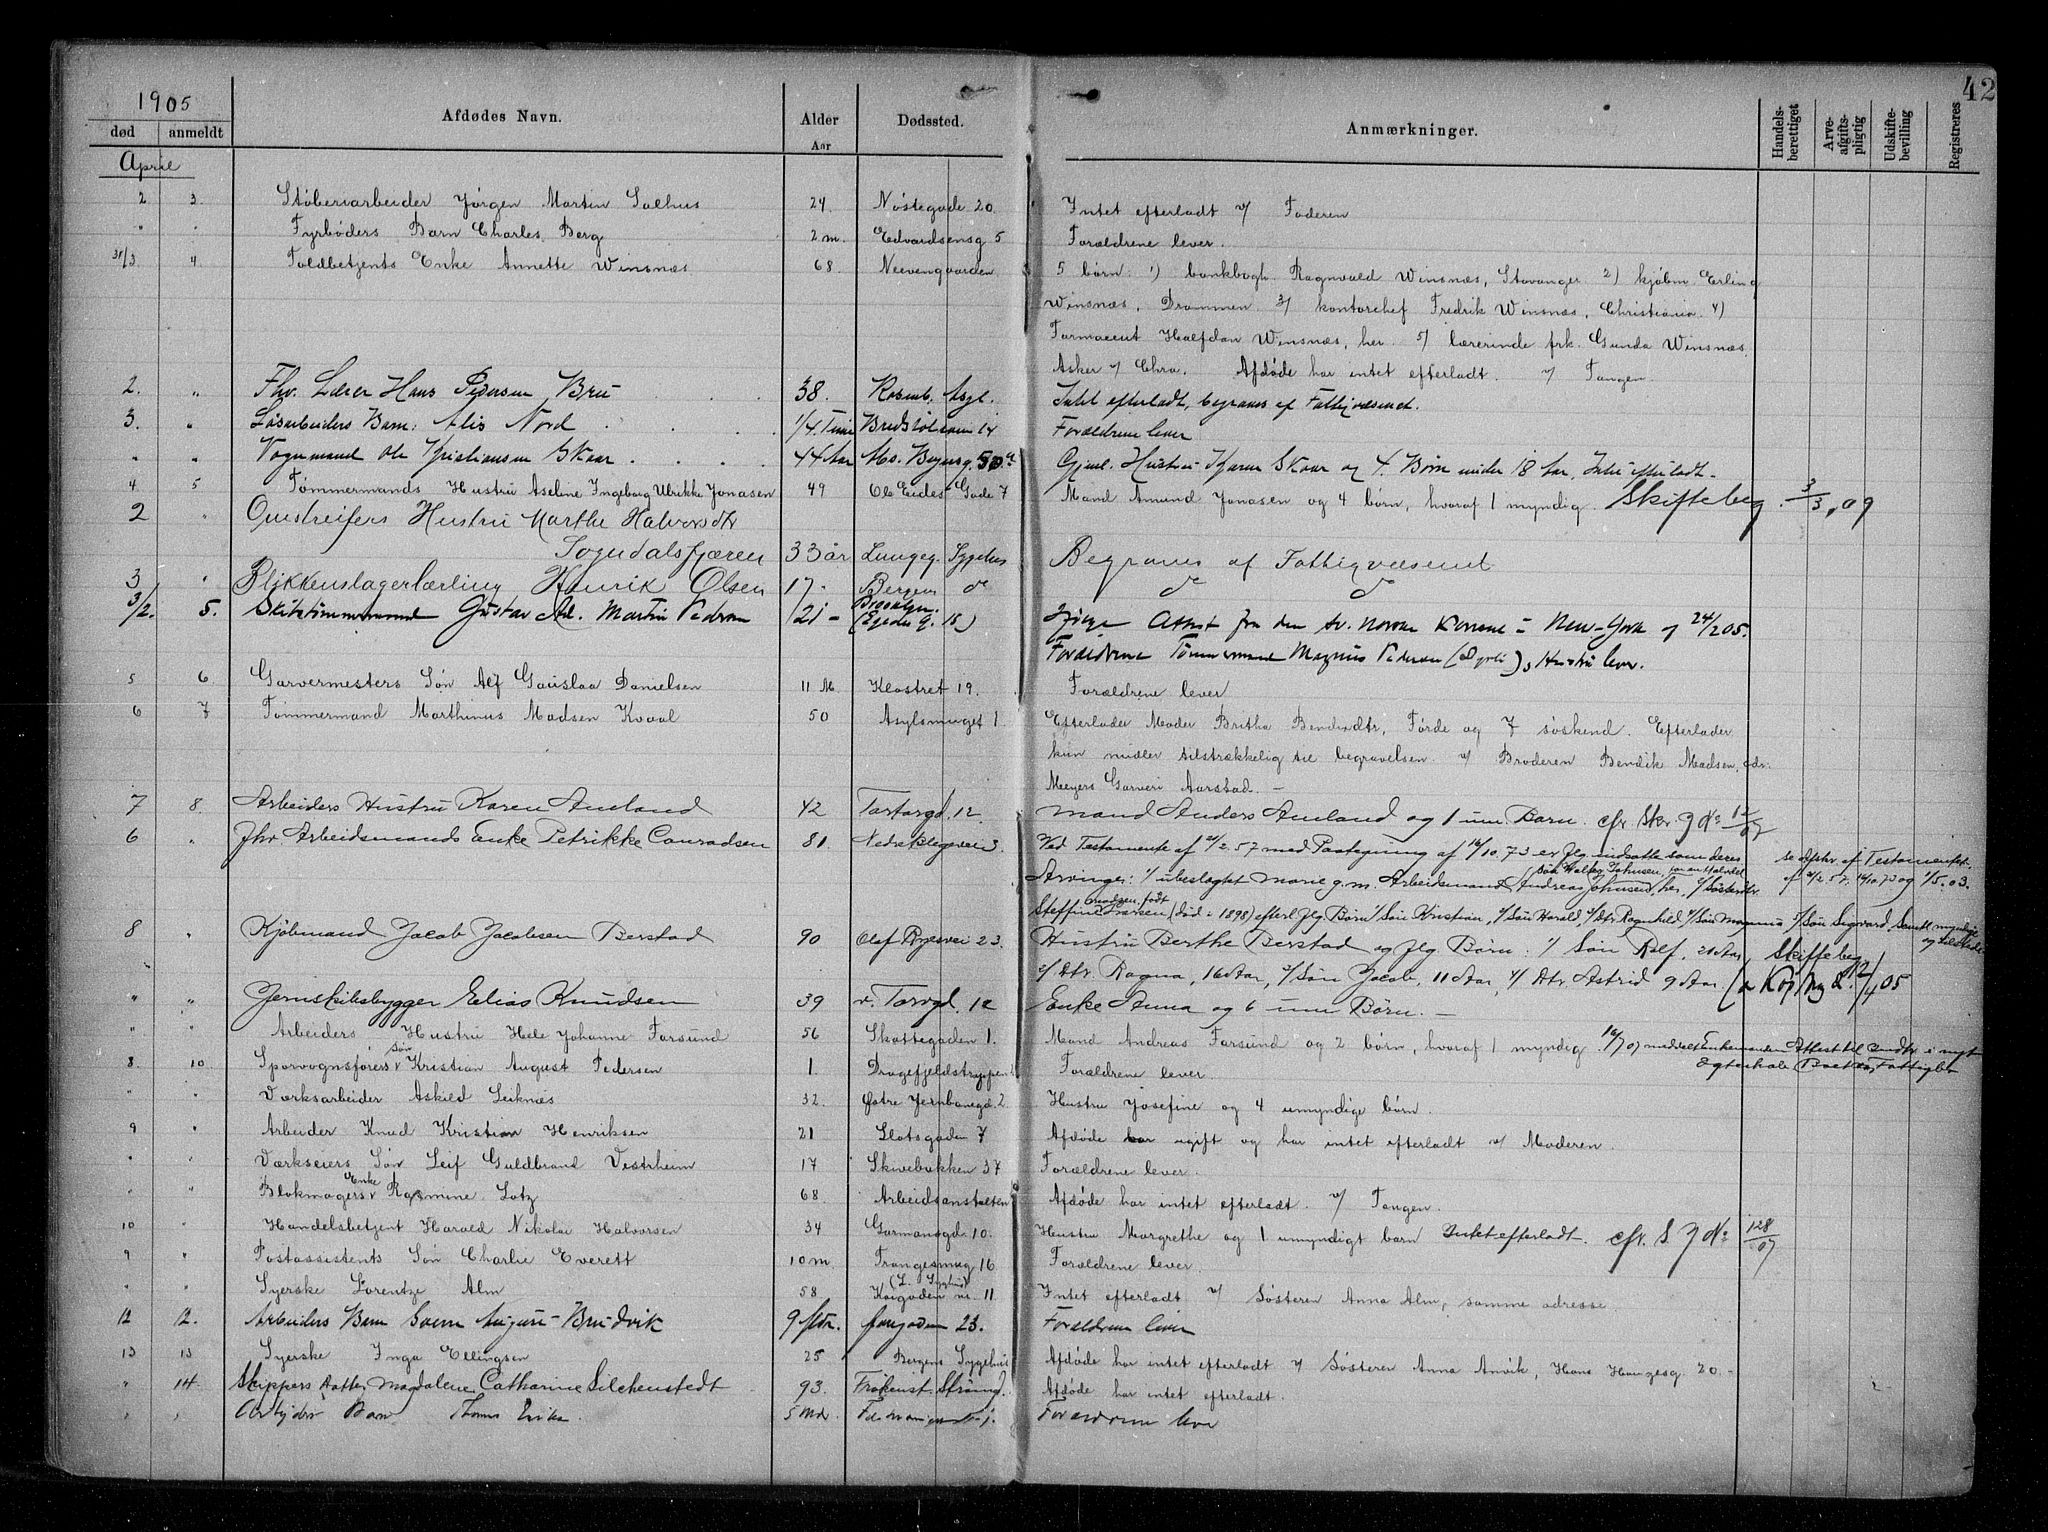 42
1905
død anmeldt Afdødes Navn. Alder Aar Dødssted. Anmærkninger. Handelsberettiget Arveafgiftspligtig Udskiftebevilling Registreres
April
2 3 Støberiarbeider Jørgen Martin Salhus 24 Nøstegade 20 Intet efterladt v/ Faderen
" " Fyrbøders Barn Charles Berg 2 m. Edvardsensg 5 Forældrene lever.
31/3 4 Toldbetjents Enke Annette Winsnæs 68 Neevengaarden 5 børn: 1) bankbogh. Ragnvald Winsnæs, Stavanger 2) kjøbm Erling
Winsnæs, Drammen 3) kontorchef Fredrik Winsnæs, Christiania 4)
Farmaceut Halfdan Winsnæs, her. 5) lærerinde frk. Gunda Winsnæs,
Asker v/ Chra. Afdøde har intet efterladt. v/ Tangen
2. " Fhv. Lærer Hans Pedersen Bru 38. Rosenb. Asyl. Intet efterladt, begraves af Fattigvæsenet.
3. " Løsarbeiders Barn: Alis Nord 1/4 Time 14 Forældrene lever
" " Vognmand Ole Kristiansen Skaar 44 Aar Gjenl. Hustru Karen Skaar og 4 Børn under 18 Aar, Intet efterladt.
4 5 Tømmermands Hustru Aseline Ingeborg Ulrikke Jonasen 49 Ole Eides Gade 7 Mand Amund Jonasen og 4 børn, hvoraf 1 myndig. Skiftebeg. 3/3, 09
2 " Omstreifers Hustru Marthe Halvorsdtr
Sogndalsfjæren 33 år Lungeg. Sygehus Begraves af Fattigvæsenet
3 " Blikkenslagerlærling Henrik Olsen 17 - Bergens do do do
3/2. 5. Skibstømmermand Gustav Ad. Martin Pedersen 21 - Brooklyn. (Egedes g. 15) Ifølge Attest fra den sv. norske Kirke i New-York af 24/2 05.
Forældrene Tømmermand Magnus Pedersen & Hustru lever.
5 6 Garvermesters Søn Alf Gauslaa Danielsen 11 M Klostret 19. Forældrene lever
6 7 Tømmermand Marthinus Madsen Kvaal 50 Asylsmuget 1. Efterlader Moder Britha Bendixdtr, Førde og 7 søskend. Efterlader
kun midler tilstrækkelig til begravelsen. v/ Broderen Bendik Madsen, adr.
Meyers Garveri Aarstad. -
7 8 Arbeiders Hustru Karen Amland 42 Torvgd. 12. Mand Anders Amland og 1 um. Barn. cfr. Skr. J No 12/07
6 " Fhv. Arbeidsmands Enke Petrikke Conradsen 81 Nedre Blegevei 3. Ved Testamente af 21/2.57 med Paategning af 14/10.73 er flg. indsatte som deres se afskr. af Testamentet
Arvinger: 1/ ubeslægtet Marie g.m. Arbeidsmand Andreas Johnsen her, af 21/2.57, 14/10.73 og 1/5.03.
Steffine Larsen (død i 1898) efterl. flg. Børn 1/ Søn Kristian, 2/ Søn Harald, 3/ Dtr Ragnhild 4/ Søn Magnus 5/ Søn Sigvard, samtl. myndige
8 " Kjøbmand Jacob Jacobsen Berstad 90 Olaf Ryesvei 23. Hustru Berthe Berstad og flg Børn: 1/ Søn Rolf, 20 Aar, Skiftebeg
2/ Dtr. Ragna, 16 Aar, 3/ Søn Jacob, 11 Aar, 4/ Dtr Astrid 9 Aar. 12/4 05
" " Jernskibsbygger Elias Knudsen 39 v. Torvgd. 12 Enke Anna og 6 um Børn. -
" " Arbeiders Hustru Hele Johanne Farsund 56 Skottegaden 1. Mand Andreas Farsund og 2 børn, hvoraf 1 myndig. 16/7 07 meddelt Enkemanden Attest til at indtr i nyt
8 10 Sporvognsførers Søn Kristian August Pedersen 1 Dragefjeldstrappen Forældrene lever. Ægteskab
" " Værksarbeider Askild Leiknæs 32 Østre Jernbanegd. 2 Hustru Josefine og 4 umyndige børn.
9 " Arbeider Knud Kristian Henriksen 21 Slotsgaden 7 Afdøde var ugift og har intet efterladt v/ Moderen.
" " Værkseiers Søn Leif Guldbrand Vestrheim 17 Skivebakken 37 Forældrene lever.
" " Blokmagers Enke Rasmine Lotz 68 Arbeidsanstalten Afdøde har intet efterladt. v/ Tangen.
10 " Handelsbetjent Harald Nikolai Halvorsen 34 Garmansgd. 10. Hustru Margrethe og 1 umyndigt barn Intet efterladt. cfr. S J No 128/07
9 " Postassistents Søn Charlie Everett 10 m Trangesmug 16 Forældrene lever.
" " Syerske Lorentze Alm 58 (L. Sygehus) Kaigaden nr. 11 Intet efterladt v/ Søsteren Anna Alm, samme adresse.
12 12. Arbeiders Barn August Brudvik 9 23. Forældrene lever
13 13 Syerske Inga Ellingsen 25 Bergens Sygehus Afdøde har intet efterladt v/ Søsteren Anna Anvik, Hans Haugesg. 20.-
" 14. Skippers Datter Magdalene Catharine Silchenstedt 93. Afdøde har intet efterladt.
" " Arbeiders Barn 5 Mdr Forældrene lever